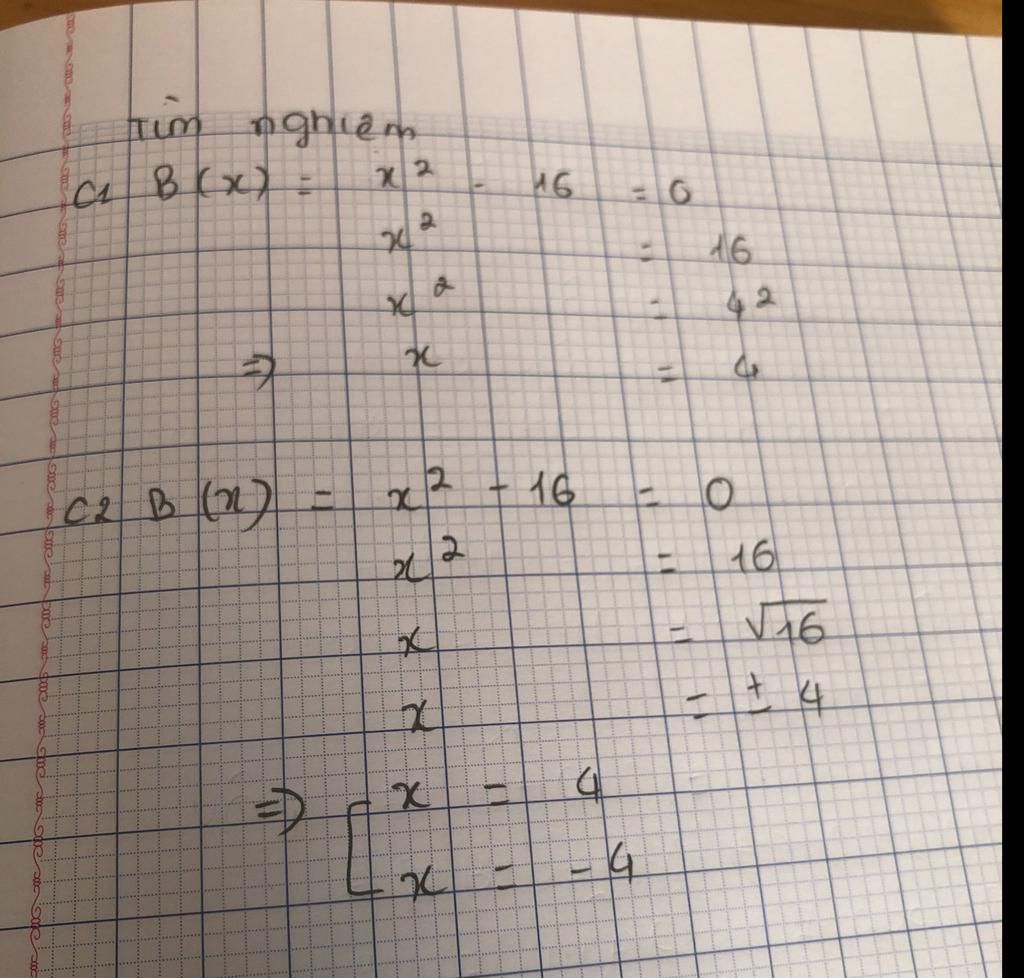 Tìm nghiệm
C1 B(x) = x² - 16 = 0
x² = 16
x² = 4²
=> x = 4
C2 B(x) = x² - 16 = 0
x² = 16
x = √16
x = ± 4
=> [ x = 4
x = - 4